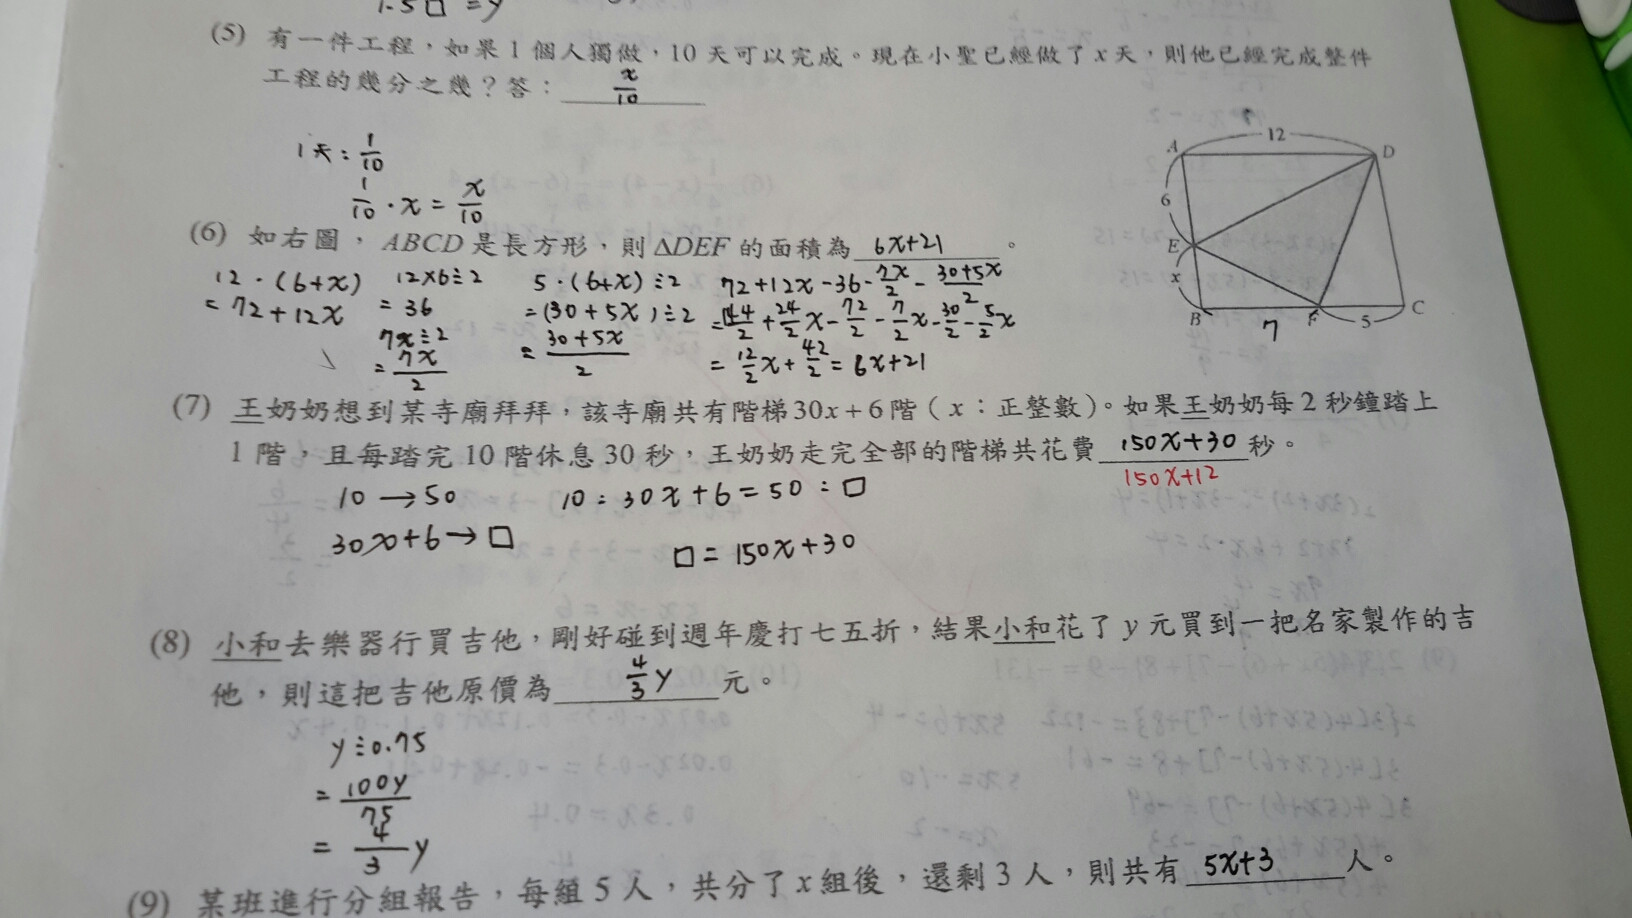 1.5□=y
(5) 有一件工程，如果1個人獨做，10天可以完成。現在小聖已經做了x天，則他已經完成整件
工程的幾分之幾？答：x/10
1天：1/10
1/10·x=x/10
(6) 如右圖，ABCD是長方形，則△DEF的面積為 6x+21 。
12·(6+x) 12×6÷2 5·(6+x)÷2 72+12x-36-7x/2-(30+5x)/2
=72+12x =36 =(30+5x)÷2 =144/2+24/2x-72/2-7/2x-30/2-5/2x
7x÷2 =(30+5x)/2 =12/2x+42/2=6x+21
=7x/2
A 12 D
6
E
x
B 7 F 5 C
(7) 王奶奶想到某寺廟拜拜，該寺廟共有階梯30x+6階（x：正整數）。如果王奶奶每2秒鐘踏上
1階，且每踏完10階休息30秒，王奶奶走完全部的階梯共花費 150x+30 秒。
150x+12
10→50 10：30x+6=50：□
30x+6→□ □=150x+30
(8) 小和去樂器行買吉他，剛好碰到週年慶打七五折，結果小和花了y元買到一把名家製作的吉
他，則這把吉他原價為 4/3y 元。
y÷0.75
=100y/75
=4/3y
(9) 某班進行分組報告，每組5人，共分了x組後，還剩3人，則共有 5x+3 人。